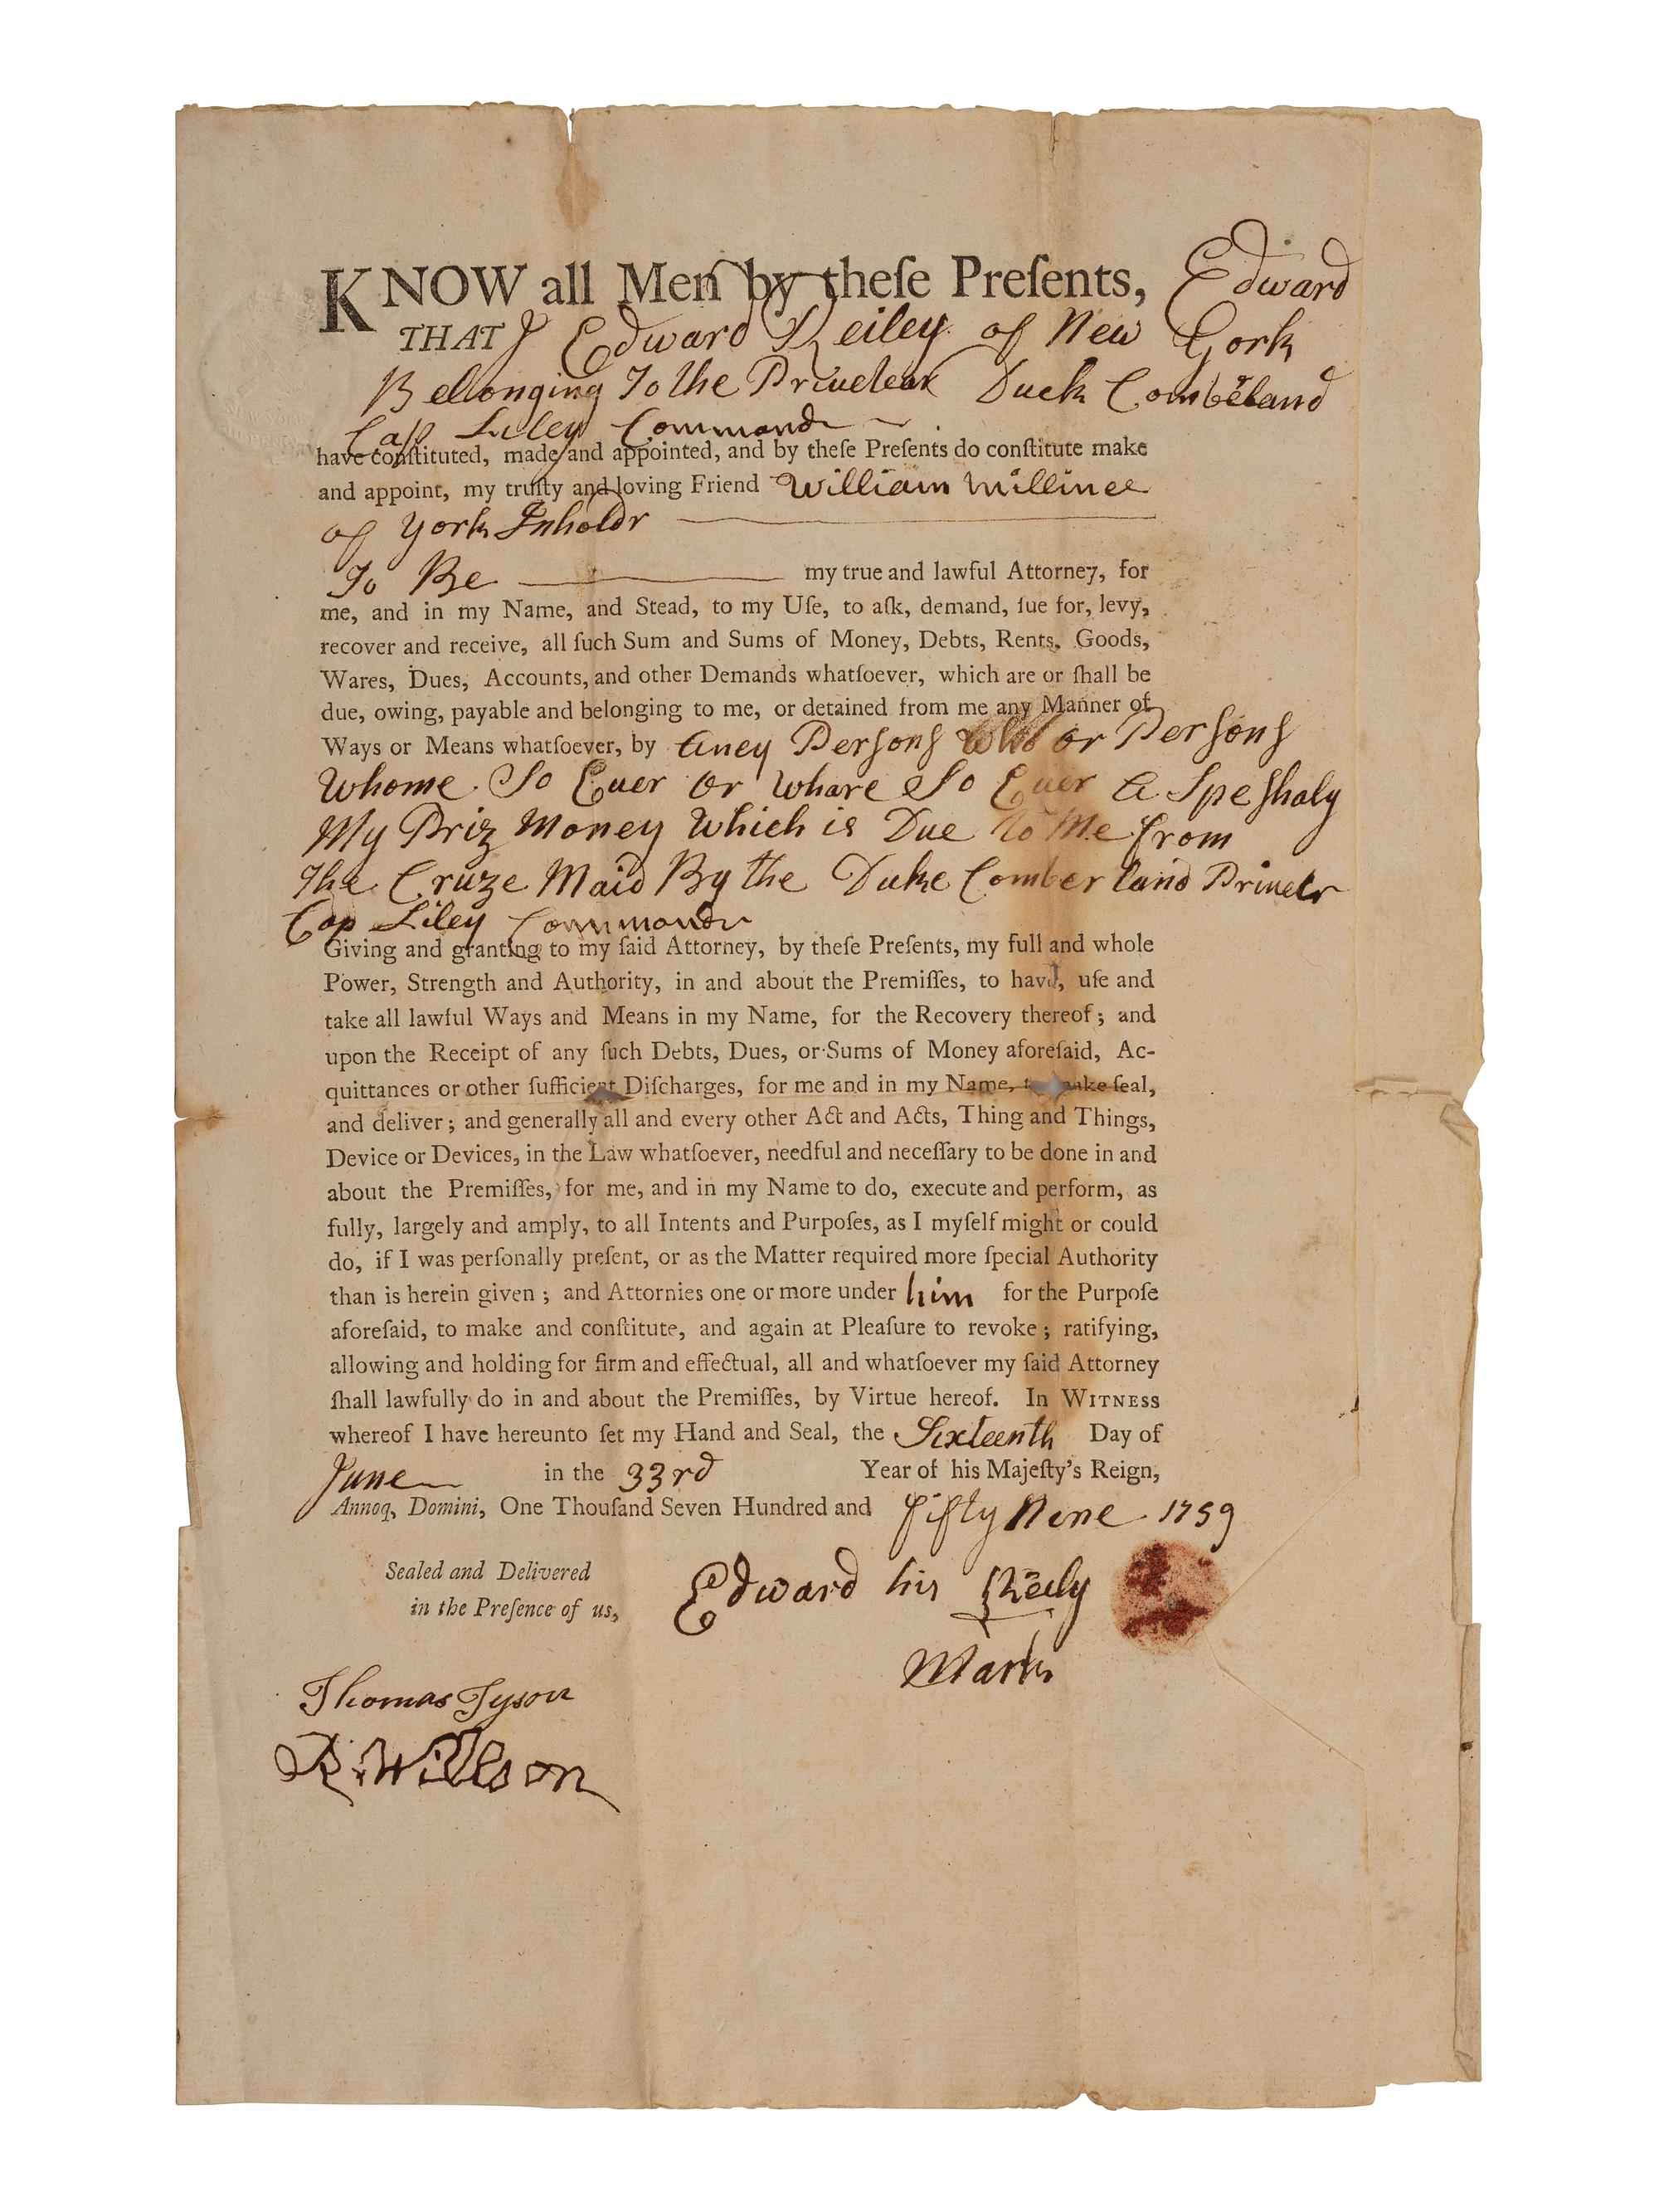 KNOW all Men by theſe Preſents, Edward
THAT I Edward Reiley of New York
Bellonging To the Priuetear Duck Combeland
Cap Liley Commandr
have conſtituted, made and appointed, and by theſe Preſents do conſtitute make
and appoint, my truſty and loving Friend William Millinee
of York Inholdr
To Be my true and lawful Attorney, for
me, and in my Name, and Stead, to my Uſe, to aſk, demand, ſue for, levy,
recover and receive, all ſuch Sum and Sums of Money, Debts, Rents, Goods,
Wares, Dues, Accounts, and other Demands whatſoever, which are or ſhall be
due, owing, payable and belonging to me, or detained from me any Manner of
Ways or Means whatſoever, by aney Persons or Persons
Whome So Euer or Whare So Euer a Speshaly
My Priz Money Which is Due to Me from
The Cruze Maid By the Duke Comberland Privetr
Cap Liley Commandr
Giving and granting to my ſaid Attorney, by theſe Preſents, my full and whole
Power, Strength and Authority, in and about the Premiſſes, to have, uſe and
take all lawful Ways and Means in my Name, for the Recovery thereof; and
upon the Receipt of any ſuch Debts, Dues, or Sums of Money aforeſaid, Ac-
quittances or other ſufficient Diſcharges, for me and in my Name, to make ſeal,
and deliver; and generally all and every other Act and Acts, Thing and Things,
Device or Devices, in the Law whatſoever, needful and neceſſary to be done in and
about the Premiſſes, for me, and in my Name to do, execute and perform, as
fully, largely and amply, to all Intents and Purpoſes, as I myſelf might or could
do, if I was perſonally preſent, or as the Matter required more ſpecial Authority
than is herein given; and Attornies one or more under him for the Purpoſe
aforeſaid, to make and conſtitute, and again at Pleaſure to revoke; ratifying,
allowing and holding for firm and effectual, all and whatſoever my ſaid Attorney
ſhall lawfully do in and about the Premiſſes, by Virtue hereof. In WITNESS
whereof I have hereunto ſet my Hand and Seal, the Sixteenth Day of
June in the 33rd Year of his Majeſty's Reign,
Annoq, Domini, One Thouſand Seven Hundred and fifty Nine 1759
Sealed and Delivered
in the Preſence of us,
Edward his Reely
Mark
Thomas Tyson
R. Willson